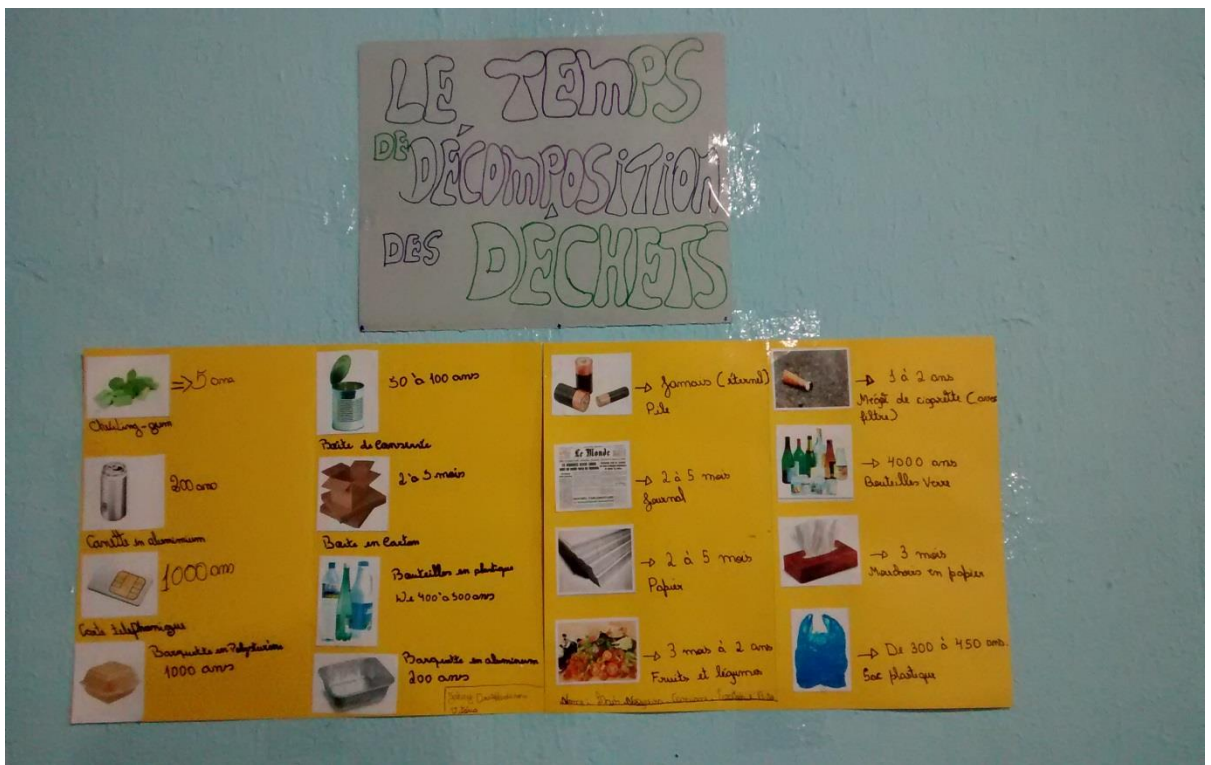 LE TEMPS
DE DÉCOMPOSITION
DES DÉCHETS
=> 5 ans
Chewing-gum
200 ans
Canette en aluminium
1000 ans
Carte téléphonique
Barquette en Polystyrène
1000 ans
50 à 100 ans
Boîte de Conserve
2 à 5 mois
Boite en Carton
Bouteilles en plastique
De 400 à 500 ans
Barquette en aluminium
200 ans
→ Jamais (éternel)
Pile
Le Monde
→ 2 à 5 mois
Journal
→ 2 à 5 mois
Papier
→ 3 mois à 2 ans
Fruits et légumes
→ 1 à 2 ans
Mégot de cigarette (avec
filtre)
→ 4000 ans
Bouteilles Verre
→ 3 mois
Mouchoirs en papier
→ De 300 à 450 ans.
Sac plastique